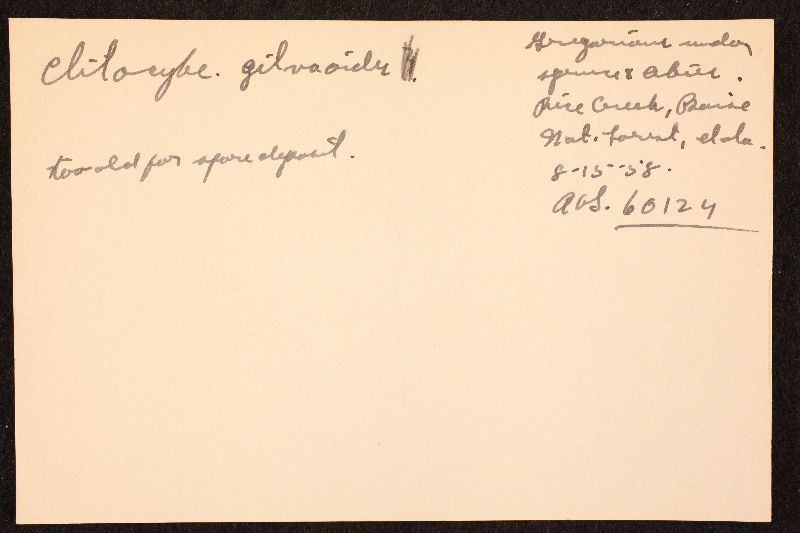 Clitocybe. gilvaoides
too old for spore deposit.
Gregarious under
spruce & abies.
Rice Creek, Boise
Nat. Forest, Ida.
8-15-58.
AHS. 60124